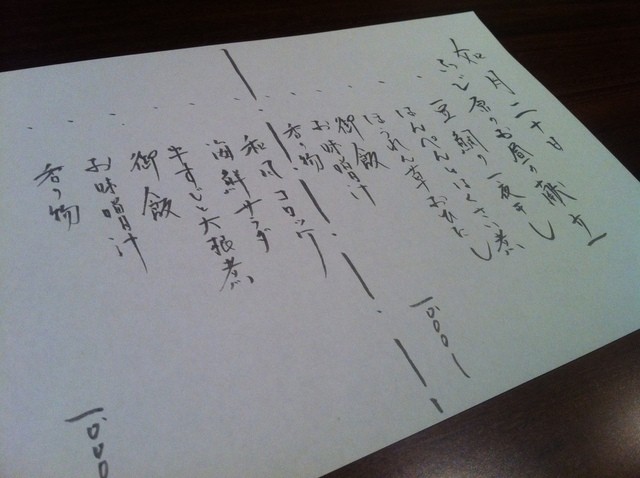 如月二十日
ふじ原のお昼の献立
豆鯛の一夜干し
はんぺんとはくさい煮
ほうれん草おひたし
御飯
お味噌汁
香の物
一、〇〇〇
和風コロッケ
海鮮サラダ
牛すじと大根煮
御飯
お味噌汁
香の物
一、〇〇〇